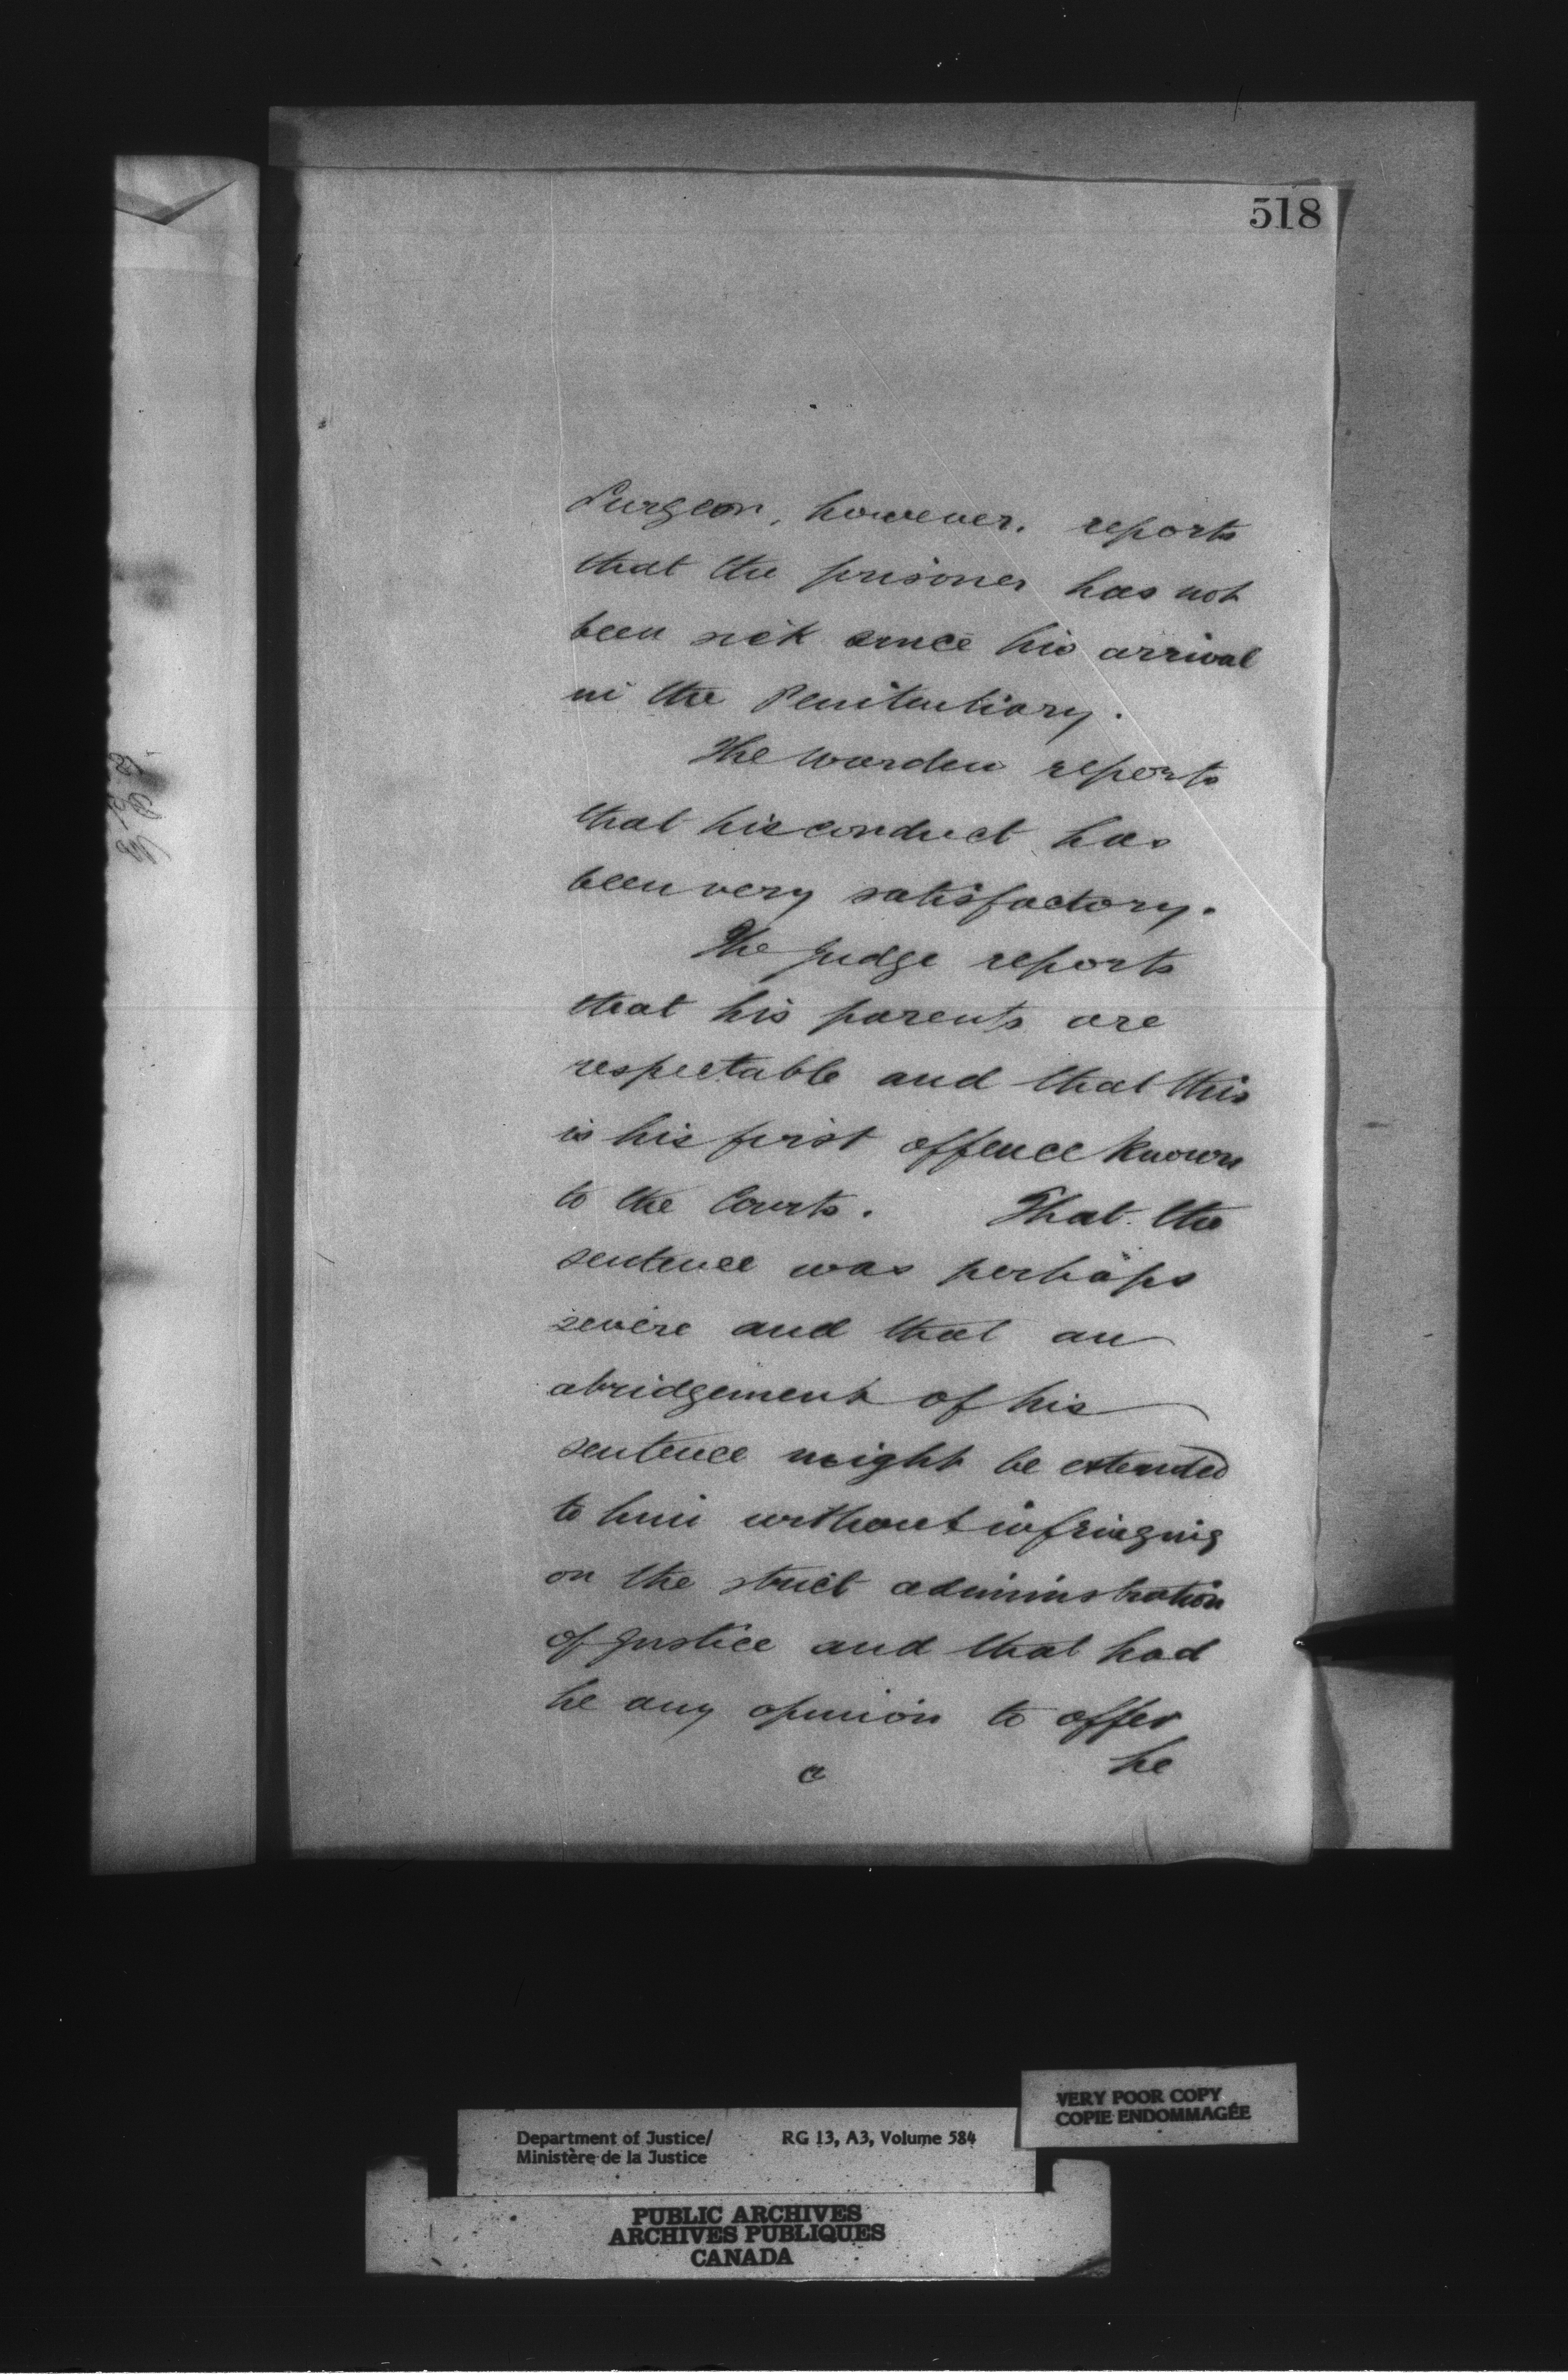 518
Surgeon, however, reports
that the prisoner has not
been sick since his arrival
in the Penitentiary.
The Warden reports
that his conduct has
been very satisfactory.
The Judge reports
that his parents are
respectable and that this
is his first offence known
to the Courts. That the
sentence was perhaps
severe and that an
abridgement of his
sentence might be extended
to him without infringing
on the strict administration
of Justice and that had
he any opinion to offer
he
VERY POOR COPY
COPIE ENDOMMAGÉE
Department of Justice/ RG 13, A3, Volume 584
Ministère de la Justice
PUBLIC ARCHIVES
ARCHIVES PUBLIQUES
CANADA